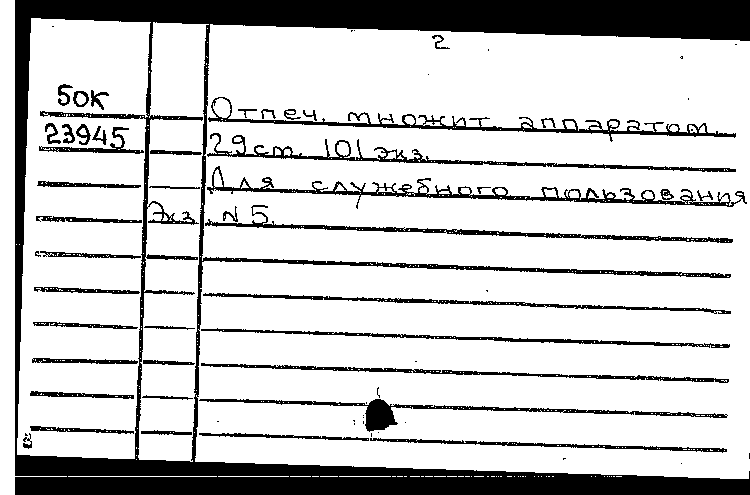 2
50К
Отпеч. множит. аппаратом.
23945
29 ст. 101 экз.
Для служебного пользования
Экз. N 5.